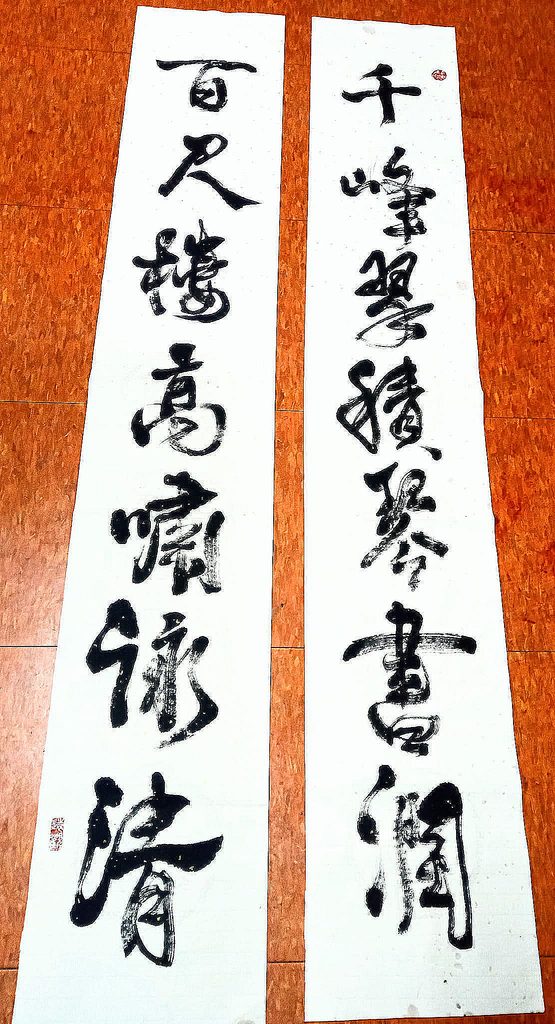 千峰翠積琴書潤
百尺樓高嘯詠清